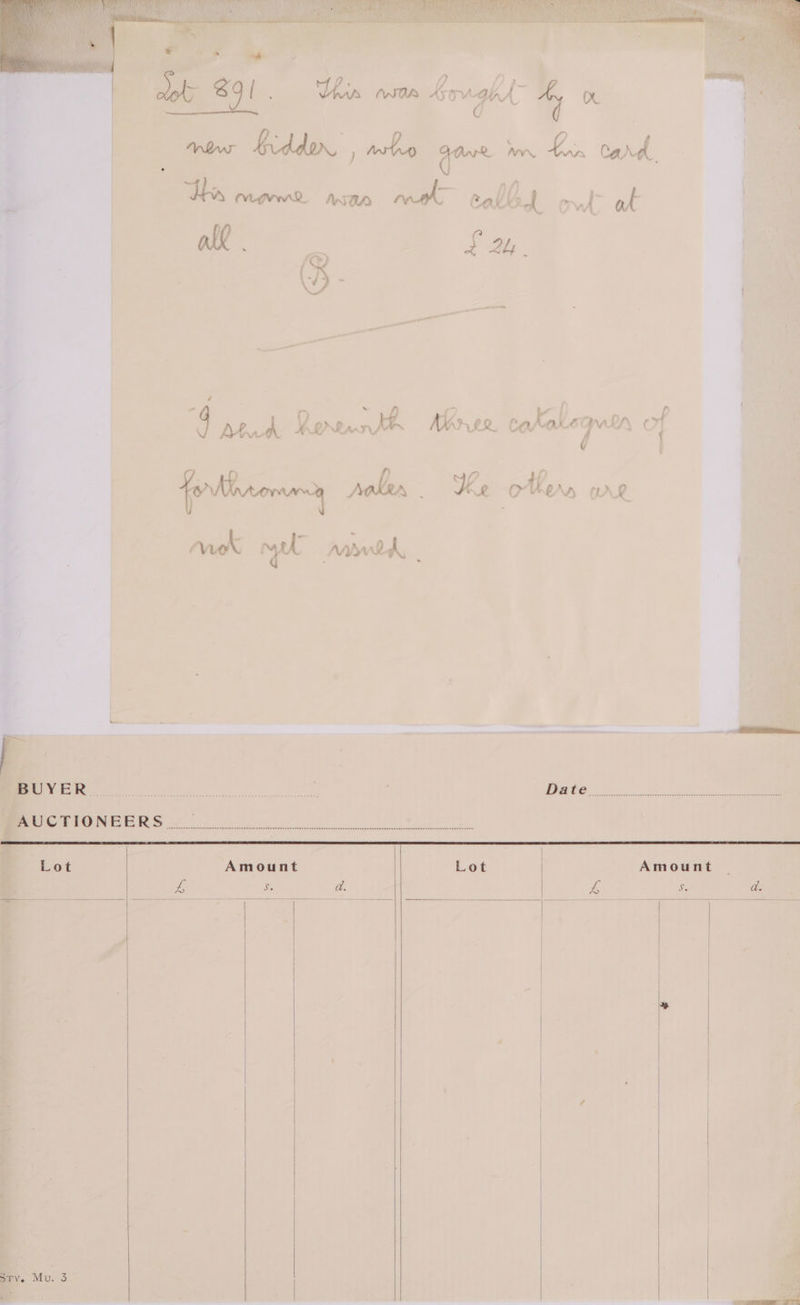 Lot 891. This was bought by a
new bidder, who gave in his card.
His name was not called out at
all. £24.
I send herewith three catalogues of
forthcoming sales. The others are
not yet issued.
BUYER Date
AUCTIONEERS
Lot Amount Lot Amount
£ s. d. £ s. d.
Sty. Mu. 3